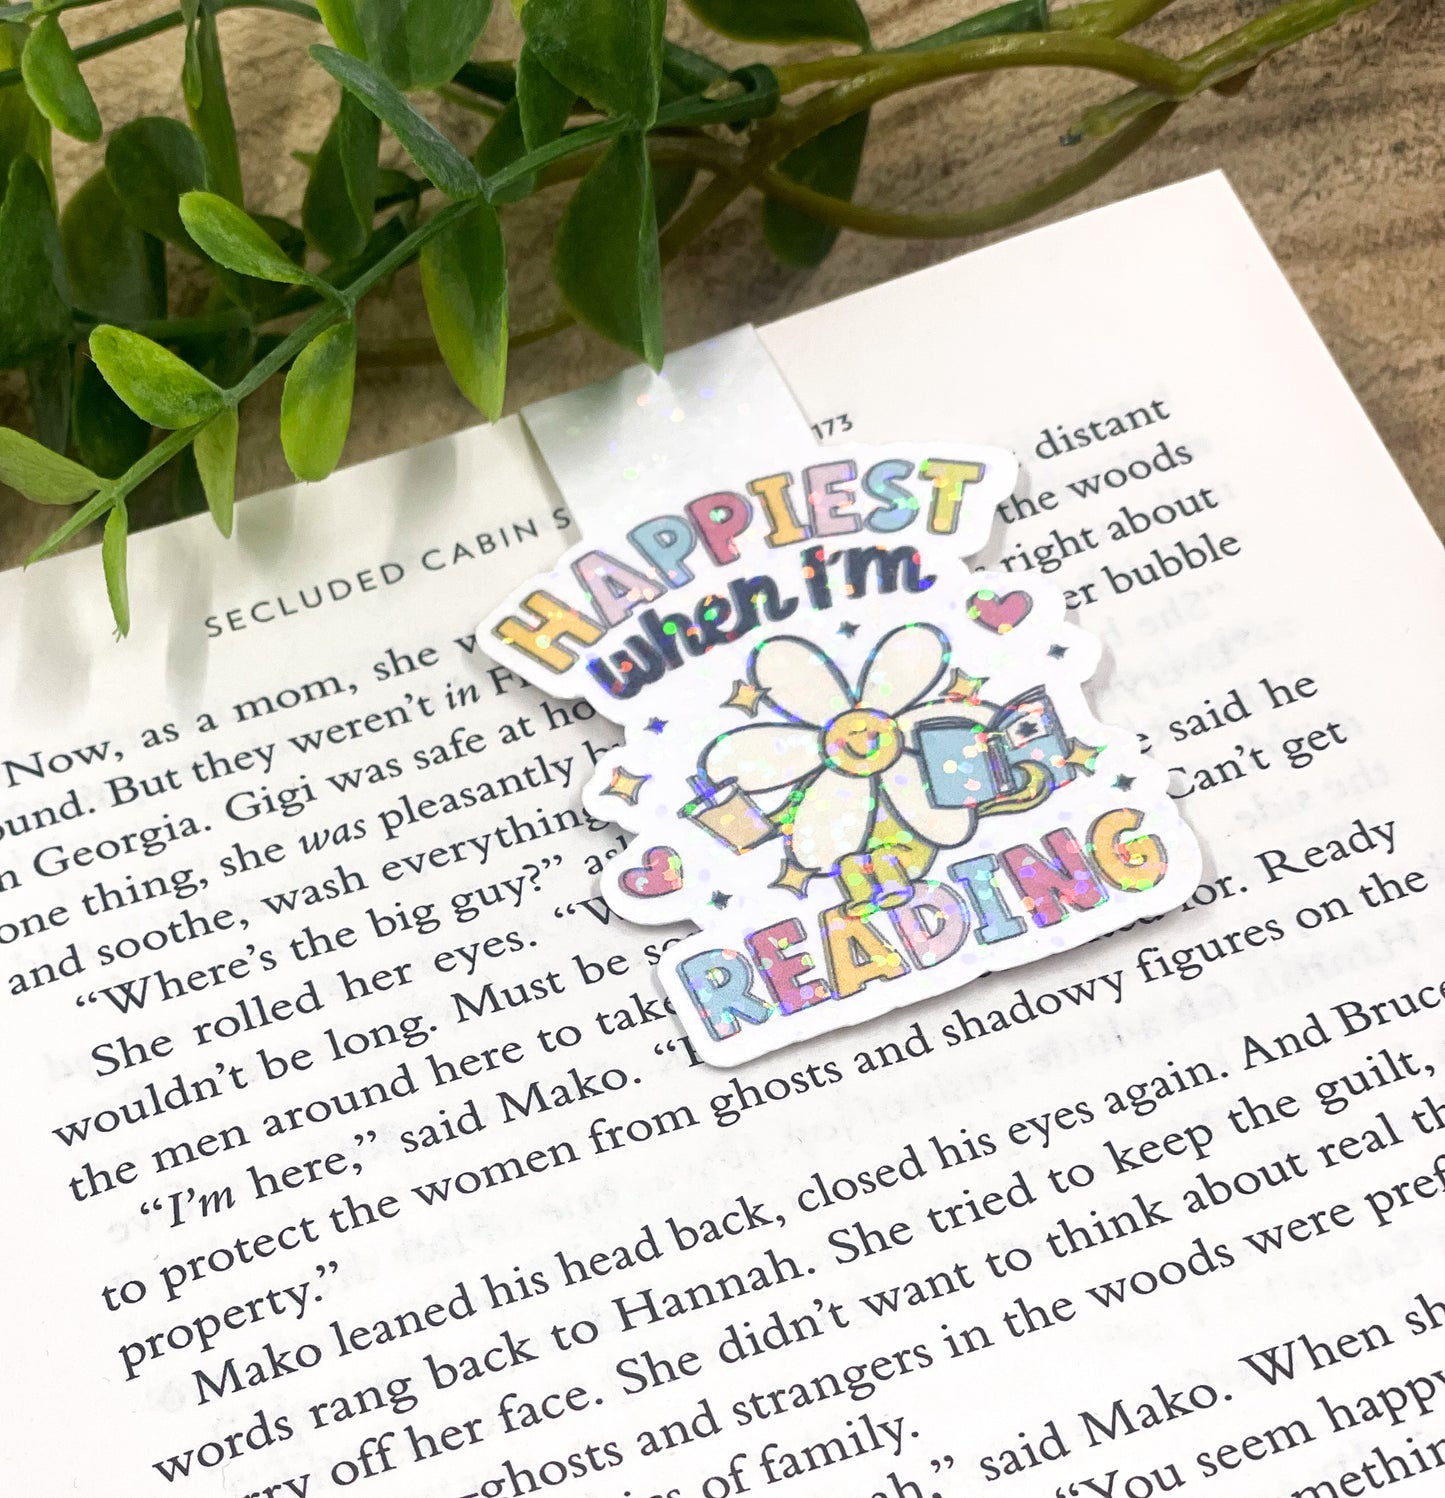 HAPPIEST
when I'm
READING
SECLUDED CABIN S
173
Now, as a mom, she w
distant
ound. But they weren't in F
the woods
n Georgia. Gigi was safe at ho
right about
one thing, she was pleasantly b
er bubble
and soothe, wash everything
"Where's the big guy?" as
said he
She rolled her eyes. "W
Can't get
wouldn't be long. Must be so
for. Ready
the men around here to take
shadowy figures on the
"I'm here," said Mako. "
to protect the women from ghosts and
property."
Mako leaned his head back, closed his eyes again. And Bruce
words rang back to Hannah. She tried to keep the guilt,
ry off her face. She didn't want to think about real th
ghosts and strangers in the woods were pref
of family.
h," said Mako. When sh
"You seem happy
methin